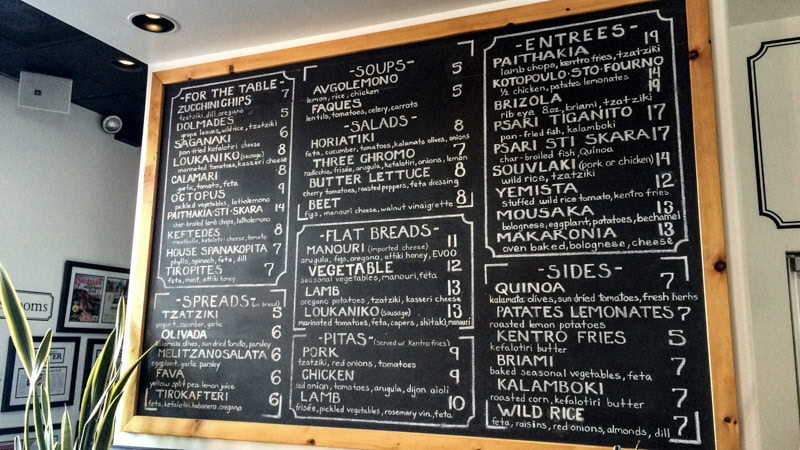 -FOR THE TABLE-
ZUCCHINI CHIPS 7
tzatziki, dill, oregano
DOLMADES 5
grape leaves, wild rice, tzatziki
SAGANAKI 6
pan-fried kefalotiri cheese
LOUKANIKO (sausage) 8
marinated tomatoes, kasseri cheese
CALAMARI 8
garlic, tomato, feta
OCTOPUS 9
pickled vegetables, latholemono
PAITHAKIA·STI·SKARA 14
char-broiled lamb chops, latholemono
KEFTEDES 8
meatballs, kefalotiri cheese, tomato
HOUSE SPANAKOPITA 7
phyllo, spinach, feta, dill
TIROPITES 7
feta, mint, attiki honey
-SPREADS-
TZATZIKI 5
yogurt, cucumber, garlic
OLIVADA 6
kalamata olives, sun dried tomato, parsley
MELITZANOSALATA 6
eggplant, garlic, parsley
FAVA 5
yellow split pea, lemon juice
TIROKAFTERI 6
feta, kefalotiri, habanero, oregano
-SOUPS-
AVGOLEMONO 5
lemon, rice, chicken
FAQUES 5
lentils, tomatoes, celery, carrots
-SALADS-
HORIATIKI 8
feta, cucumber, tomatoes, kalamata olives, onions
THREE CHROMO 7
radicchio, frisée, arugula, kefalotiri, onions, lemon
BUTTER LETTUCE 8
cherry tomatoes, roasted peppers, feta dressing
BEET 8
figs, manouri cheese, walnut vinaigrette
-FLAT BREADS-
MANOURI (imported cheese) 11
arugula, figs, oregano, attiki honey, EVOO
VEGETABLE 12
seasonal vegetables, manouri, feta
LAMB 13
oregano potatoes, tzatziki, kasseri cheese
LOUKANIKO (sausage) 13
marinated tomatoes, feta, capers, shitaki, manouri
-PITAS- (Served w/ Kentro fries)
PORK 9
tzatziki, red onions, tomatoes
CHICKEN 9
red onion, tomatoes, arugula, dijon aioli
LAMB 10
frisée, pickled vegetables, rosemary vin, feta
-ENTREES-
PAITHAKIA 19
lamb chops, kentro fries, tzatziki
KOTOPOULO·STO·FOURNO 14
½ chicken, patates lemonates
BRIZOLA 19
rib eye 8oz, briami, tzatziki
PSARI TIGANITO 17
pan-fried fish, kalamboki
PSARI STI SKARA 17
char-broiled fish, Quinoa
SOUVLAKI (pork or chicken) 14
wild rice, tzatziki
YEMISTA 12
stuffed wild rice tomato, kentro fries
MOUSAKA 13
bolognese, eggplant, potatoes, bechamel
MAKARONIA 13
oven baked, bolognese, cheese
-SIDES-
QUINOA 7
kalamata olives, sun dried tomatoes, fresh herbs
PATATES LEMONATES 7
roasted lemon potatoes
KENTRO FRIES 5
kefalotiri butter
BRIAMI 7
baked seasonal vegetables, feta
KALAMBOKI 7
roasted corn, kefalotiri butter
WILD RICE 7
feta, raisins, red onions, almonds, dill
ooms